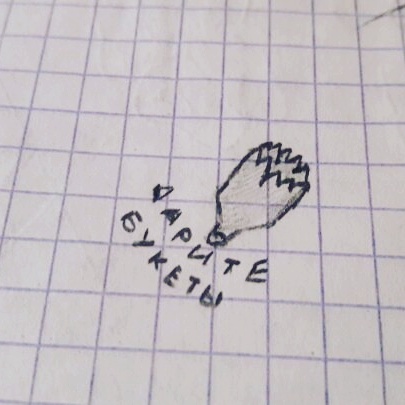 ДАРИТЕ
БУКЕТЫ